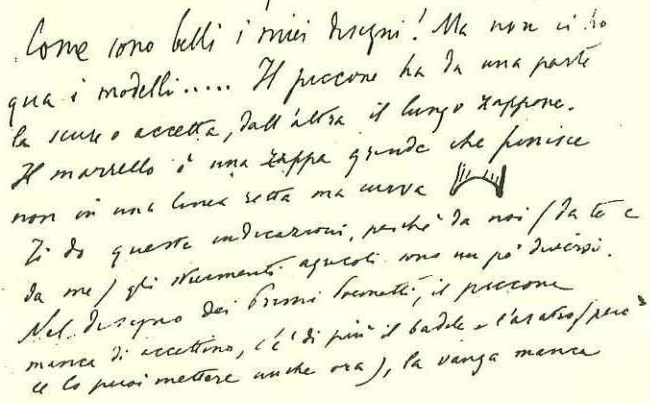 Come sono belli i miei disegni! Ma non ci ho
qua i modelli..... Il piccone ha da una parte
la scure o accetta, dall'altra il lungo zappone.
Il marrello è una zappa grande che finisce
non in una linea retta ma curva
Ti do queste indicazioni, perchè da noi (da te e
da me) gli strumenti agricoli sono un pò diversi.
Nel disegno dei Primi Sonetti, il piccone
manca di accettino, c'è di più il badile e l'aratro (però
ce lo puoi mettere anche ora), la vanga manca